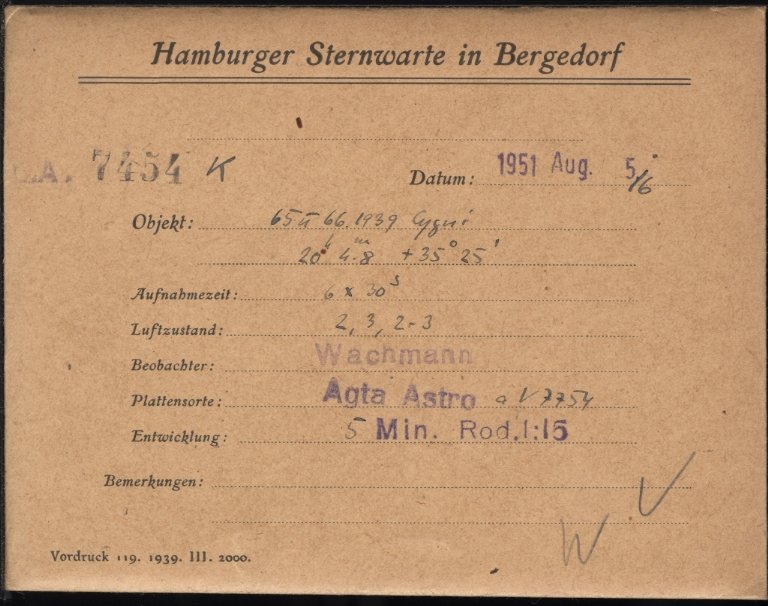 Hamburger Sternwarte in Bergedorf
L.A. 7454 K
Datum: 1951 Aug. 5/6
Objekt: 65 u 66.1939 Cygni
20h 4m.8 +35° 25'
Aufnahmezeit: 6 x 30s
Luftzustand: 2, 3, 2-3
Beobachter: Wachmann
Plattensorte: Agfa Astro 7754
Entwicklung: 5 Min. Rod.1:15
Bemerkungen:
V
W
Vordruck 119. 1939. III. 2000.